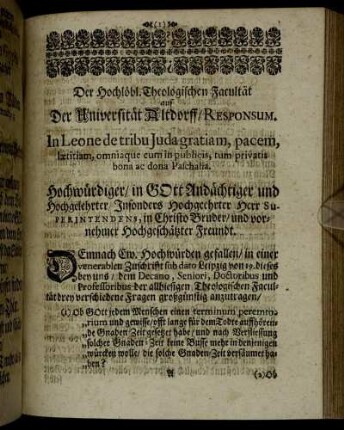 (1)
Der Hochlöbl. Theologischen Facultät
auf
Der Universität Altdorff/ RESPONSUM.
In Leone de tribu Juda gratiam, pacem,
lætitiam, omniaque cum in publicis, tum privatis
bona ac dona Paschalia.
Hochwürdiger/ in GOtt Andächtiger und
Hochgelehrter/ Insonders Hochgeehrter Herr SU-
PERINTENDENS, in Christo Bruder/ und vor-
nehmer Hochgeschätzter Freund.
DEmnach Ew. Hochwürden gefallen/ in einer
venerablen Zuschrifft sub dato Leipzig von 19. dieses
bey uns/ dem Decano, Seniori, Doctoribus und
Professoribus der allhiesigen Theologischen Facul-
tät drey verschiedene Fragen großgünstig anzutragen/
(1.) Ob GOtt jedem Menschen einen terminum peremto-
rium und gewisse/ offt lange für dem Tode auffhören-
de Gnaden-Zeit gesetzt habe/ und nach Verfliessung
solcher Gnaden-Zeit keine Busse mehr in denjenigen
würcken wolle/ die solche Gnaden-Zeit versäumet ha-
ben?
A (2.) Ob